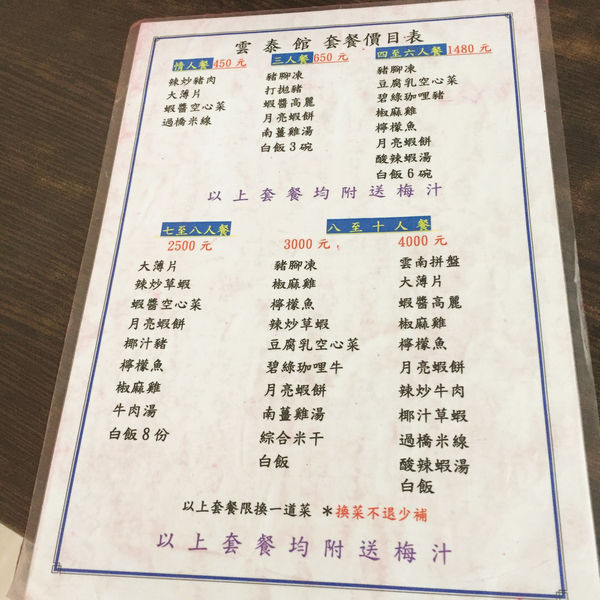 雲泰館 套餐價目表
情人餐 450元
辣炒豬肉
大薄片
蝦醬空心菜
過橋米線
三人餐 650元
豬腳凍
打拋豬
蝦醬高麗
月亮蝦餅
南薑雞湯
白飯3碗
四至六人餐 1480元
豬腳凍
豆腐乳空心菜
碧綠珈哩豬
椒麻雞
檸檬魚
月亮蝦餅
酸辣蝦湯
白飯6碗
以上套餐均附送梅汁
七至八人餐
2500元
大薄片
辣炒草蝦
蝦醬空心菜
月亮蝦餅
椰汁豬
檸檬魚
椒麻雞
牛肉湯
白飯8份
八至十人餐
3000元,
豬腳凍
椒麻雞
檸檬魚
辣炒草蝦
豆腐乳空心菜
碧綠珈哩牛
月亮蝦餅
南薑雞湯
綜合米干
白飯
4000元
雲南拼盤
大薄片
蝦醬高麗
椒麻雞
檸檬魚
月亮蝦餅
辣炒牛肉
椰汁草蝦
過橋米線
酸辣蝦湯
白飯
以上套餐限換一道菜 *換菜不退少補
以上套餐均附送梅汁